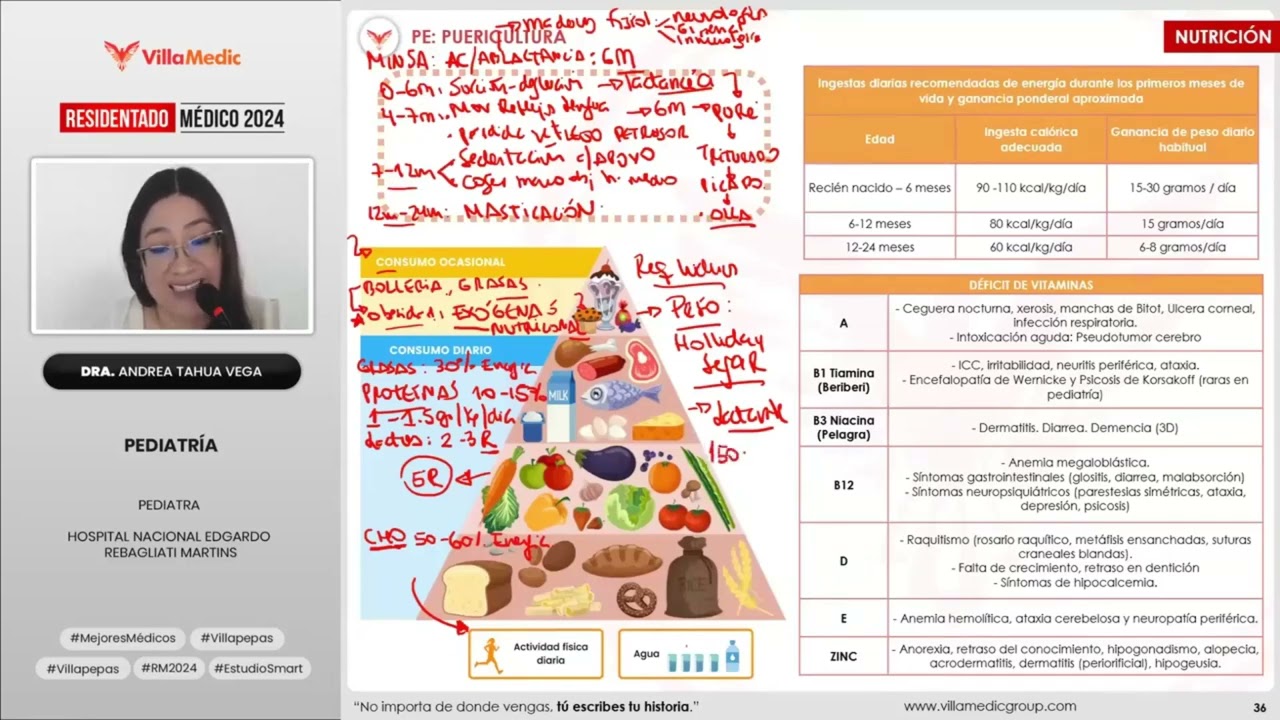 VillaMedic
RESIDENTADO MÉDICO 2024
DRA. ANDREA TAHUA VEGA
PEDIATRÍA
PEDIATRA
HOSPITAL NACIONAL EDGARDO
REBAGLIATI MARTINS
#MejoresMédicos #Villapepas
#Villapepas #RM2024 #EstudioSmart
PE: PUERICULTURA
NUTRICIÓN
→ Madurez fisiol: neurológica
inmunológica
MINSA: AC/ABLACTANCIA: 6M
0-6m: Succión-deglución → Lactancia
4-7m: Mov Reflejo lengua → 6M → PURÉ
REFLEJO RETRUSOR
TRITURADO
7-12m Sedestación c/APOYO
PICADO
12m-24m: MASTICACIÓN
OLLA
CONSUMO OCASIONAL
BOLLERIA, GRASAS
EXÓGENAS
NUTRICIONAL
CONSUMO DIARIO
GRASAS: 30% Energía
PROTEINAS 10-15%
1-1.5gr/kg/día
Lactos: 2-3R
5R
CHO 50-60% Energía
MILK
RICE
Req. hídricos
→ PESO:
Holliday
Segar
→ Lactante
150
Actividad física
diaria
Agua
Ingestas diarias recomendadas de energía durante los primeros meses de
vida y ganancia ponderal aproximada
Edad Ingesta calórica adecuada Ganancia de peso diario habitual
Recién nacido – 6 meses 90 -110 kcal/kg/día 15-30 gramos / día
6-12 meses 80 kcal/kg/día 15 gramos/día
12-24 meses 60 kcal/kg/día 6-8 gramos/día
DÉFICIT DE VITAMINAS
A
- Ceguera nocturna, xerosis, manchas de Bitot, Ulcera corneal,
infección respiratoria.
- Intoxicación aguda: Pseudotumor cerebro
B1 Tiamina
(Beriberi)
- ICC, irritabilidad, neuritis periférica, ataxia.
- Encefalopatía de Wernicke y Psicosis de Korsakoff (raras en
pediatría)
B3 Niacina
(Pelagra)
- Dermatitis. Diarrea. Demencia (3D)
B12
- Anemia megaloblástica.
- Síntomas gastrointestinales (glositis, diarrea, malabsorción)
- Síntomas neuropsiquiátricos (parestesias simétricas, ataxia,
depresión, psicosis)
D
- Raquitismo (rosario raquítico, metáfisis ensanchadas, suturas
craneales blandas).
- Falta de crecimiento, retraso en dentición
- Síntomas de hipocalcemia.
E
- Anemia hemolítica, ataxia cerebelosa y neuropatía periférica.
ZINC
- Anorexia, retraso del conocimiento, hipogonadismo, alopecia,
acrodermatitis, dermatitis (periorificial), hipogeusia.
“No importa de donde vengas, tú escribes tu historia.”
www.villamedicgroup.com
36